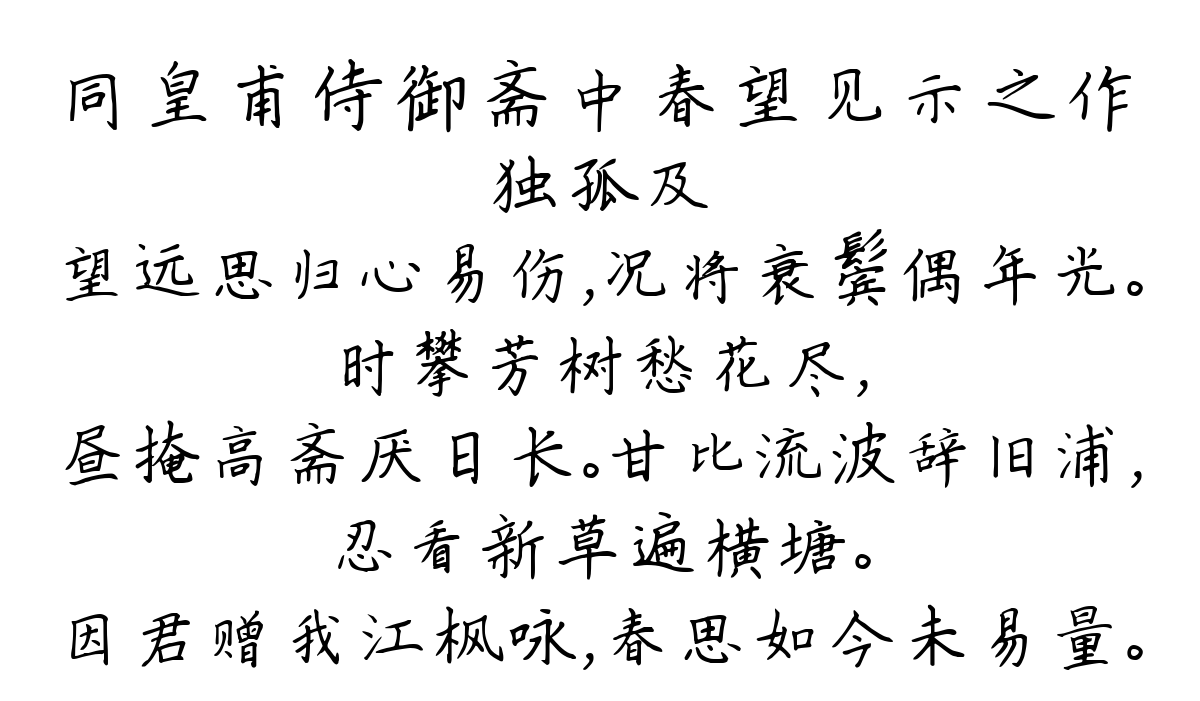 同皇甫侍御斋中春望见示之作
独孤及
望远思归心易伤,况将衰鬓偶年光。
时攀芳树愁花尽,
昼掩高斋厌日长。甘比流波辞旧浦,
忍看新草遍横塘。
因君赠我江枫咏,春思如今未易量。